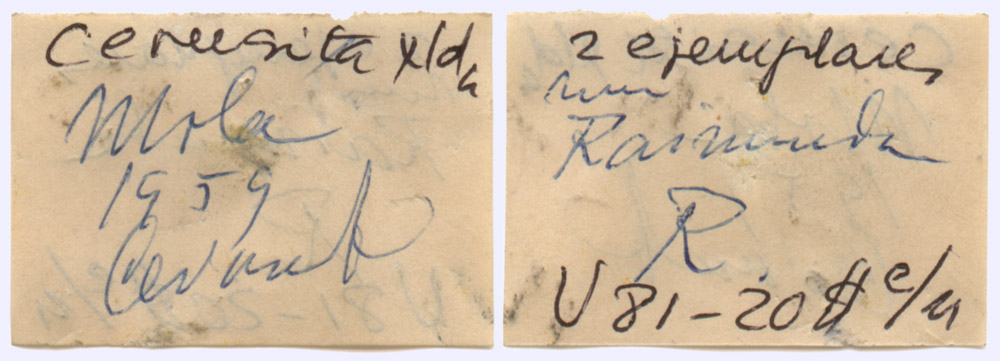 Cerusita xlda
Mola
1959
2 ejemplares
Raimunda
R.
U 81-20 # c/u